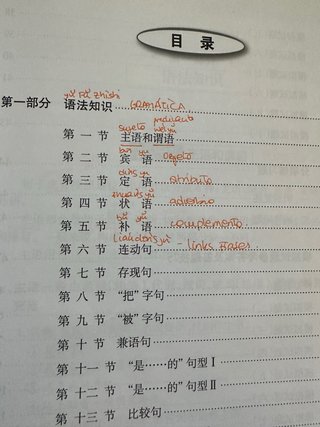 目 录
yǔ fǎ zhīshi
第一部分 语法知识 GRAMÁTICA
sujeto predicado
第 一 节 主语和谓语
bīn yǔ
第 二 节 宾 语 objeto
dìng yǔ
第 三 节 定 语 atributo
zhuàng yǔ
第 四 节 状 语 adverbio
bǔ yǔ
第 五 节 补 语 complemento
liándòng jù
第 六 节 连动句 - links
第 七 节 存现句
第 八 节 “把”字句
第 九 节 “被”字句
第 十 节 兼语句
第 十一 节 “是……的”句型Ⅰ
第 十二 节 “是……的”句型Ⅱ
第 十三 节 比较句